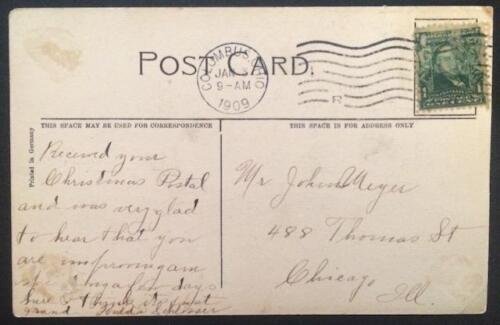 POST CARD.
COLUMBUS, OHIO
JAN
9-AM
1909
R
THIS SPACE MAY BE USED FOR CORRESPONDENCE
THIS SPACE IS FOR ADDRESS ONLY
Printed in Germany
Received your
Christmas Postal
and was very glad
to hear that you
are improving am
spending a few days
here
grand
Mr John Meyer
488 Thomas St
Chicago
Ill.